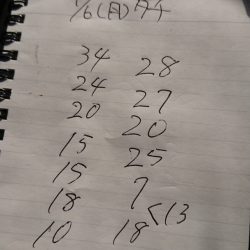 1/6(月)
34 28
24 27
20 20
15 25
15 7
18 <13
10 18